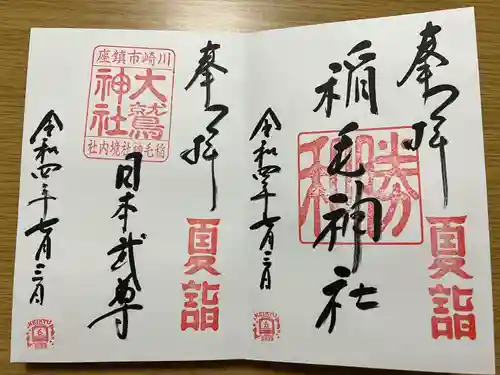 奉拝
夏詣
稲毛神社
勝
和
令和四年七月三日
奉拝
夏詣
川崎市鎮座
大鷲
神社
稲毛神社境内社
日本武尊
令和四年七月三日